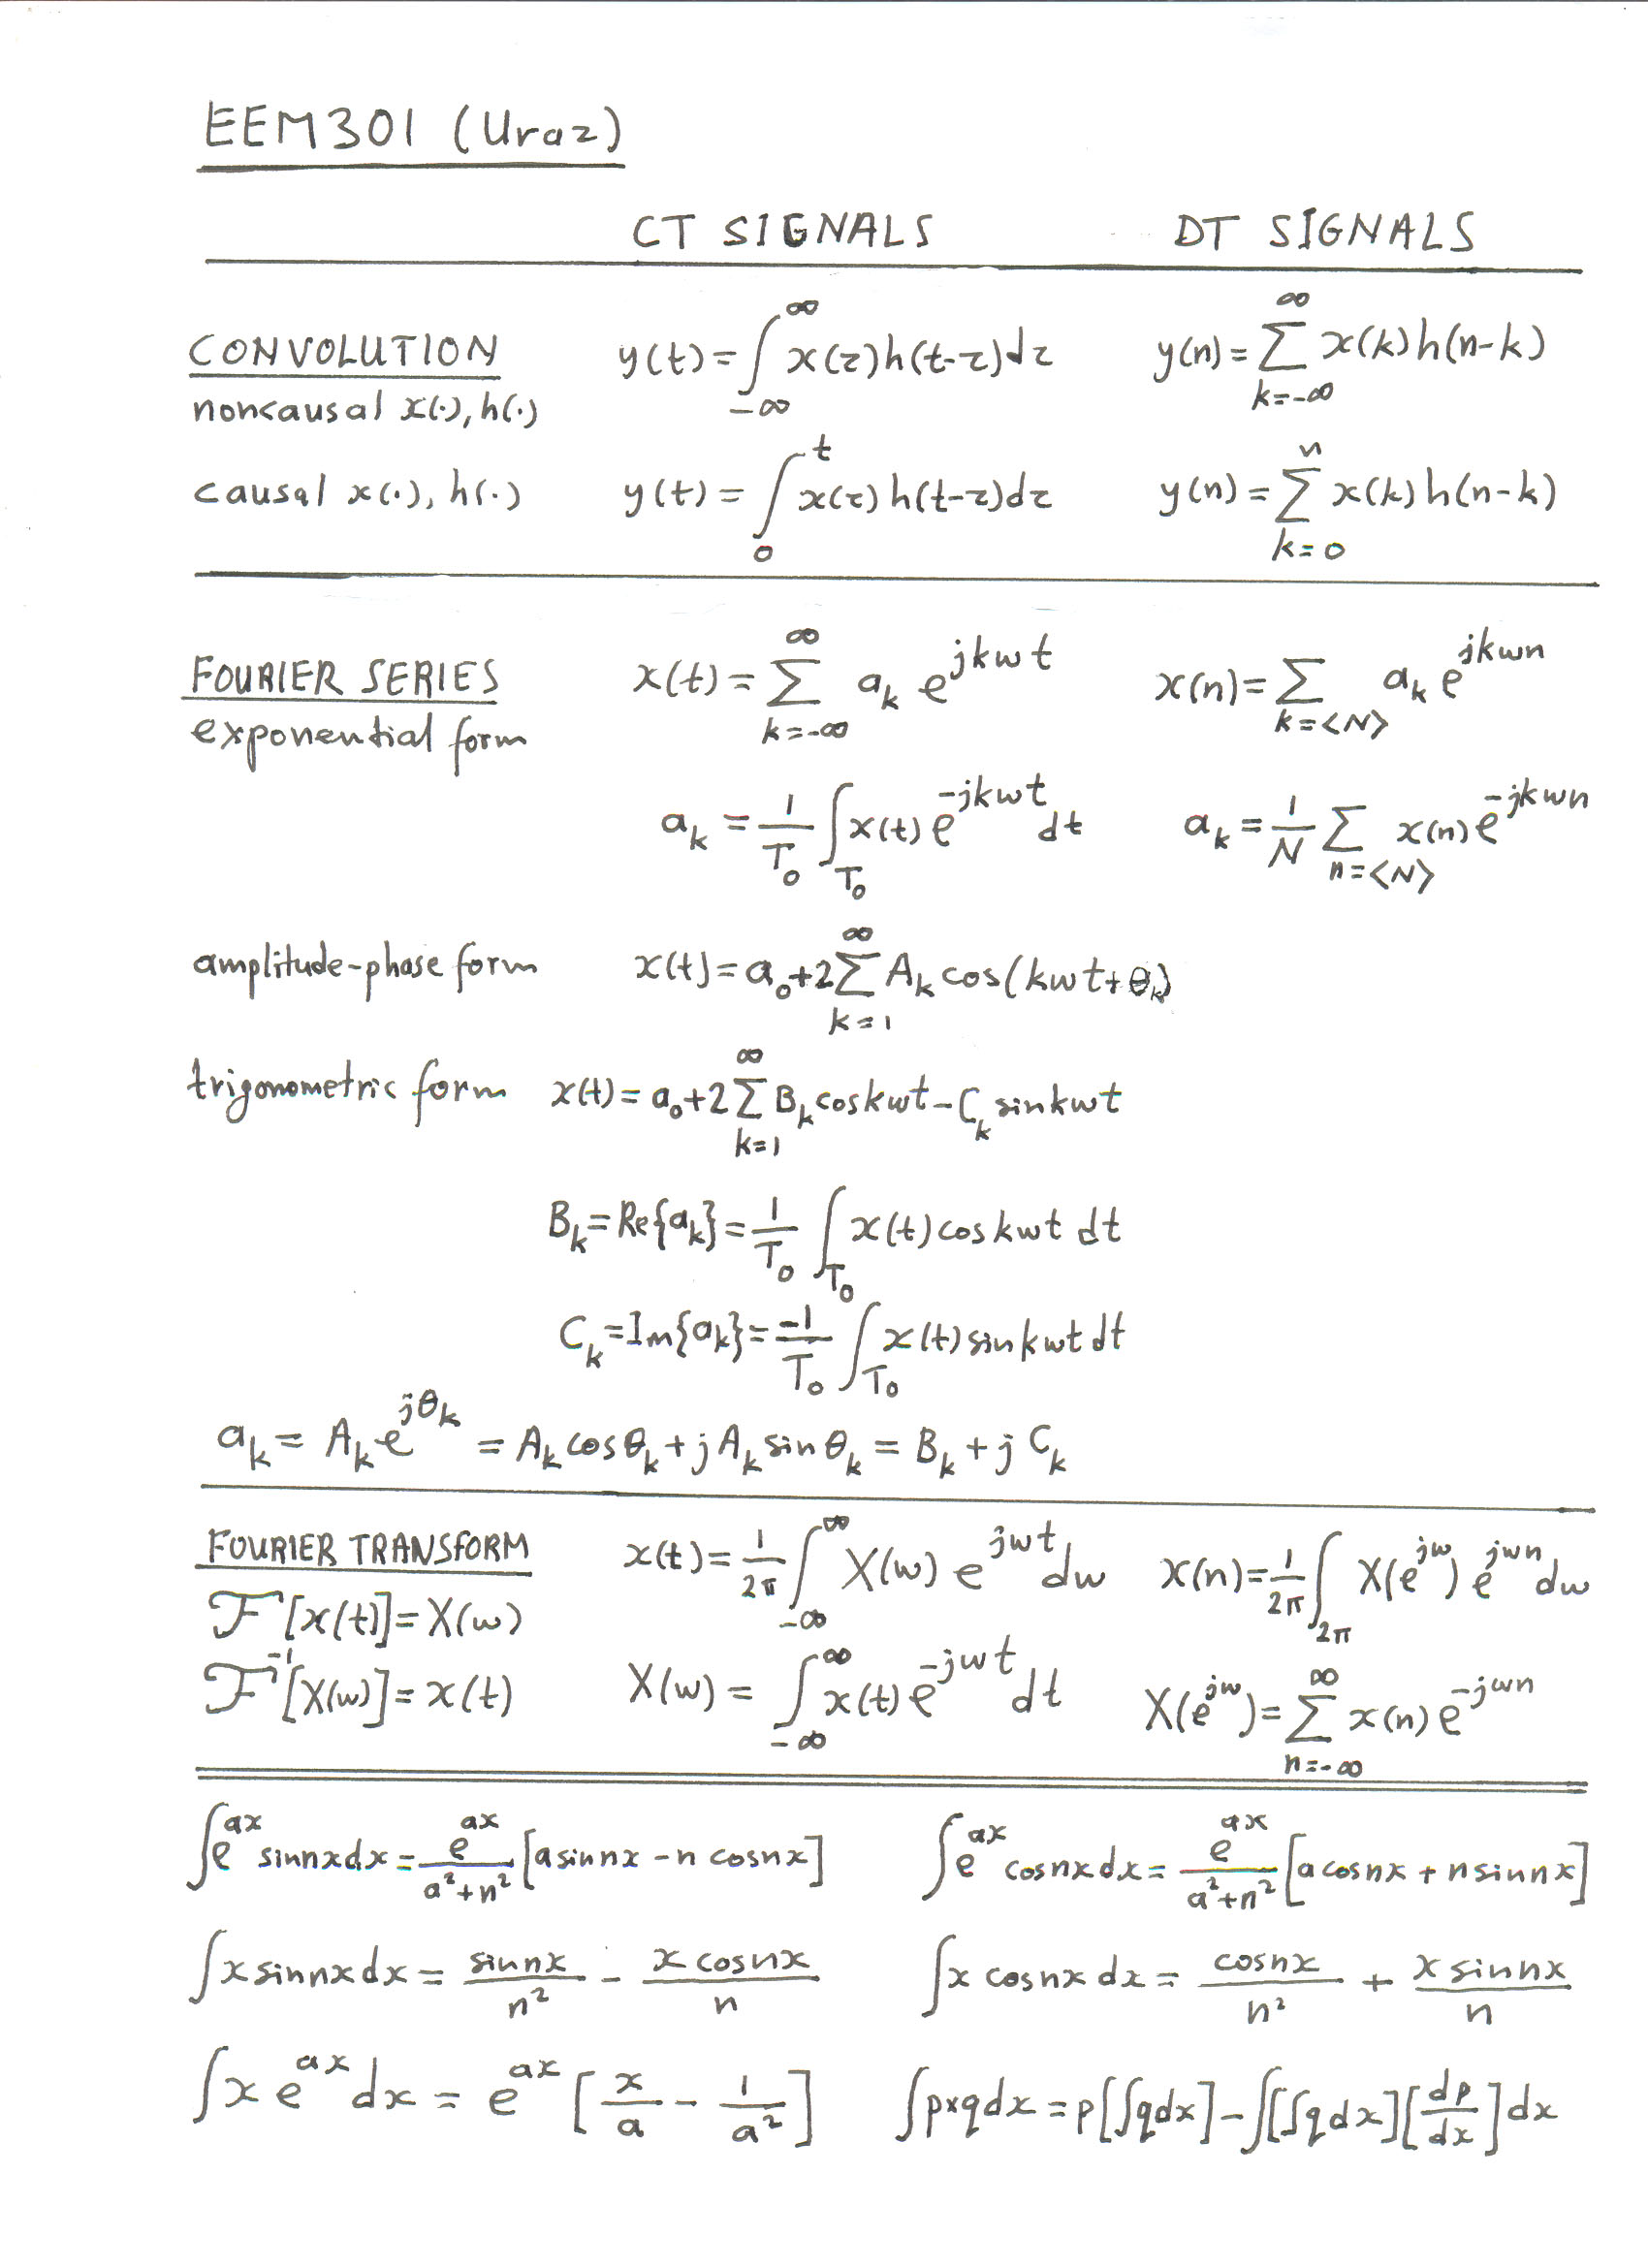 EEM301 (Uraz)
CT SIGNALS DT SIGNALS
CONVOLUTION y(t) = ∫_{-∞}^{∞} x(τ)h(t-τ)dτ y(n) = ∑_{k=-∞}^{∞} x(k)h(n-k)
noncausal x(·), h(·)
causal x(·), h(·) y(t) = ∫_{0}^{t} x(τ)h(t-τ)dτ y(n) = ∑_{k=0}^{n} x(k)h(n-k)
FOURIER SERIES x(t) = ∑_{k=-∞}^{∞} a_k e^{jkwt} x(n) = ∑_{k=<N>} a_k e^{jkwn}
exponential form
a_k = 1/T_0 ∫_{T_0} x(t) e^{-jkwt} dt a_k = 1/N ∑_{n=<N>} x(n) e^{-jkwn}
amplitude-phase form x(t) = a_0 + 2∑_{k=1}^{∞} A_k cos(kwt + θ_k)
trigonometric form x(t) = a_0 + 2∑_{k=1}^{∞} B_k cos kwt - C_k sin kwt
B_k = Re{a_k} = 1/T_0 ∫_{T_0} x(t) cos kwt dt
C_k = Im{a_k} = -1/T_0 ∫_{T_0} x(t) sin kwt dt
a_k = A_k e^{jθ_k} = A_k cos θ_k + j A_k sin θ_k = B_k + j C_k
FOURIER TRANSFORM x(t) = 1/2π ∫_{-∞}^{∞} X(w) e^{jwt} dw x(n) = 1/2π ∫_{2π} X(e^{jw}) e^{jwn} dw
F[x(t)] = X(w)
F^{-1}[X(w)] = x(t) X(w) = ∫_{-∞}^{∞} x(t) e^{-jwt} dt X(e^{jw}) = ∑_{n=-∞}^{∞} x(n) e^{-jwn}
∫e^{ax} sin nx dx = e^{ax}/(a²+n²) [a sin nx - n cos nx] ∫e^{ax} cos nx dx = e^{ax}/(a²+n²) [a cos nx + n sin nx]
∫x sin nx dx = sin nx/n² - x cos nx/n ∫x cos nx dx = cos nx/n² + x sin nx/n
∫x e^{ax} dx = e^{ax} [x/a - 1/a²] ∫p×q dx = p[∫q dx] - ∫[∫q dx][dp/dx] dx